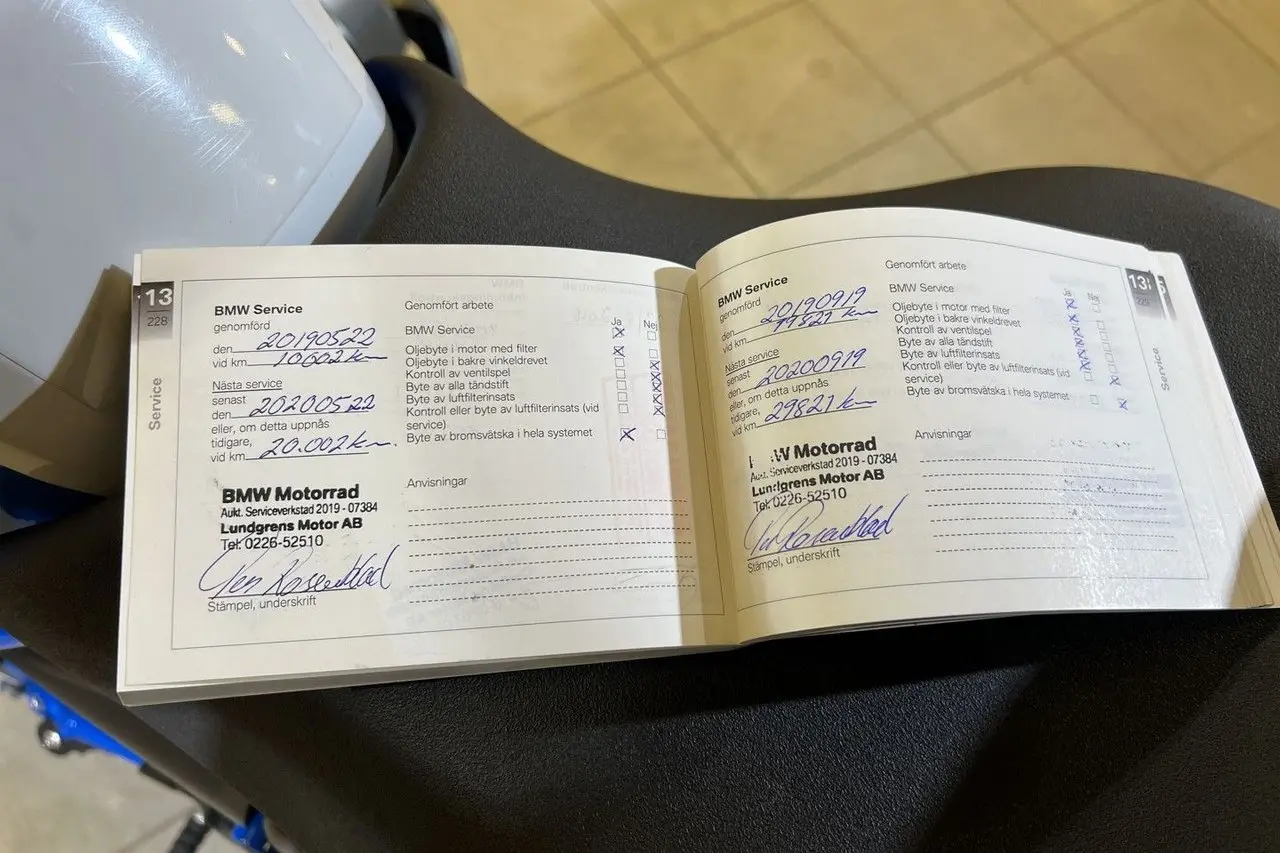 13
228
Service
BMW Service
genomförd
den 20190522
vid km 10.002 km
Nästa service
senast
den 20200522
eller, om detta uppnås
tidigare,
vid km 20.002 km.
BMW Motorrad
Aukt. Serviceverkstad 2019 - 07384
Lundgrens Motor AB
Tel: 0226-52510
Stämpel, underskrift
Genomfört arbete
Ja Nej
BMW Service
Oljebyte i motor med filter
Oljebyte i bakre vinkeldrevet
Kontroll av ventilspel
Byte av alla tändstift
Byte av luftfilterinsats
Kontroll eller byte av luftfilterinsats (vid
service)
Byte av bromsvätska i hela systemet
Anvisningar
BMW Service
genomförd
den 20190919
vid km 19821 km
Nästa service
senast
den 20200919
eller, om detta uppnås
tidigare,
vid km 29821 km
BMW Motorrad
Aukt. Serviceverkstad 2019 - 07384
Lundgrens Motor AB
Tel: 0226-52510
Stämpel, underskrift
Genomfört arbete
Ja Nej
BMW Service
Oljebyte i motor med filter
Oljebyte i bakre vinkeldrevet
Kontroll av ventilspel
Byte av alla tändstift
Byte av luftfilterinsats
Kontroll eller byte av luftfilterinsats (vid
service)
Byte av bromsvätska i hela systemet
Anvisningar
13
229
Service